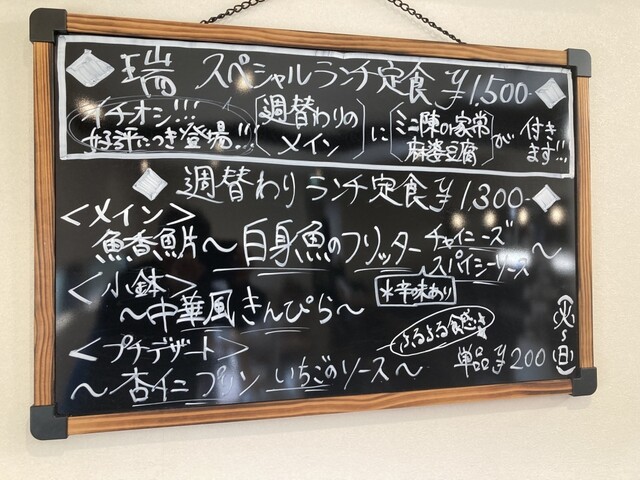 瑞 スペシャルランチ定食 ¥1,500-
イチオシ!!!
好評につき登場!!
週替わりの
メイン
に
ミニ陳or家常
麻婆豆腐
が
付き
ます!!
週替わり ランチ定食 ¥1,300-
<メイン>
魚香魚片〜白身魚のフリッター チャイニーズ
スパイシーソース〜
<小鉢>
※辛味あり
〜中華風きんぴら〜
<プチデザート>
ふるふる食感
単品¥200
〜杏仁プリン いちごのソース〜
(火〜日)